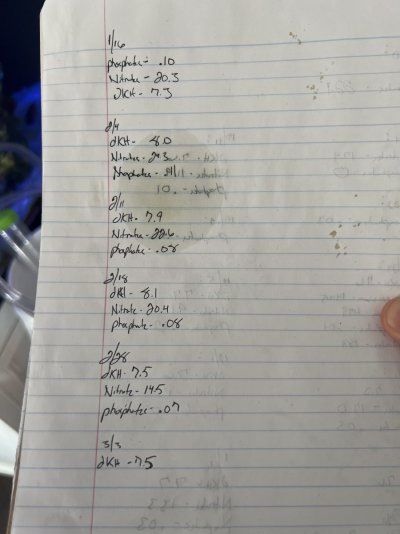 1/16
phosphates - .10
Nitrates - 20.3
dKH - 7.3
2/4
dKH - 8.0
Nitrates -
phosphates -
2/11
dKH - 7.9
Nitrates - 22.6
phosphate - .08
2/18
dKH - 8.1
Nitrate - 20.4
phosphate - .08
2/28
dKH - 7.5
Nitrate - 14.5
phosphates - .07
3/3
dKH - 7.5